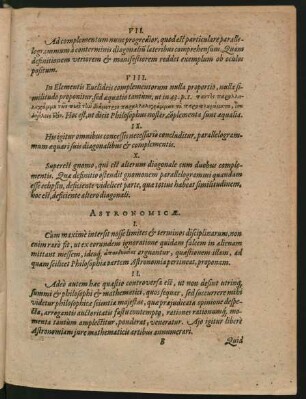 VII.
Ad complementum nunc progredior, quod est particulare paralle-
logrammum à conterminis diagonaliũ lateribus comprehensum. Quam
definitionem verterem & manifesterem reddit exemplum ob oculos
positum.
VIII.
In Elementis Euclideis complementorum nulla proportio, nulla si-
militudo proponitur, sed æqualitas tantum, ut in 43. p. 1.
Hoc est, ut dicit Philosophus noster, Complementa sunt æqualia.
IX.
His igitur omnibus concessis necessario concluditur, parallelogram-
mum æquari suis diagonalibus & complementis.
X.
Superest gnomo, qui est alterum diagonale cum duobus comple-
mentis. Qua definitio ostendit gnomonem parallelogrammi quandam
esse eclipsin, deficiente videlicet parte, qua totius habeat similitudinem,
hoc est, deficiente altero diagonali.
ASTRONOMICÆ.
I.
Cum maximè intersit nosse limites & terminos disciplinarum, non
enim rarò fit, ut ex eorundem ignoratione quidam falcem in alienam
mittant messem, ideoq́ arguantur, quæstionem illam, ad
quam scilicet Philosophiæ partem Astronomia pertineat, proponam.
II.
Adeò autem hæc quæstio controversa est, ut non desint utrinq́
summi & philosophi & mathematici, quos sequar, sed succurrere mihi
videtur philosophica scientia majestas, quæ præjudicata opinione despe-
cta, arrogantis auctoritatis fastu contempto, rationes rationumq́ mo-
menta tantum amplectitur, ponderat, veneratur. Ajo igitur liberè
Astronomiam jure mathematicis artibus annumerari.
B Quid